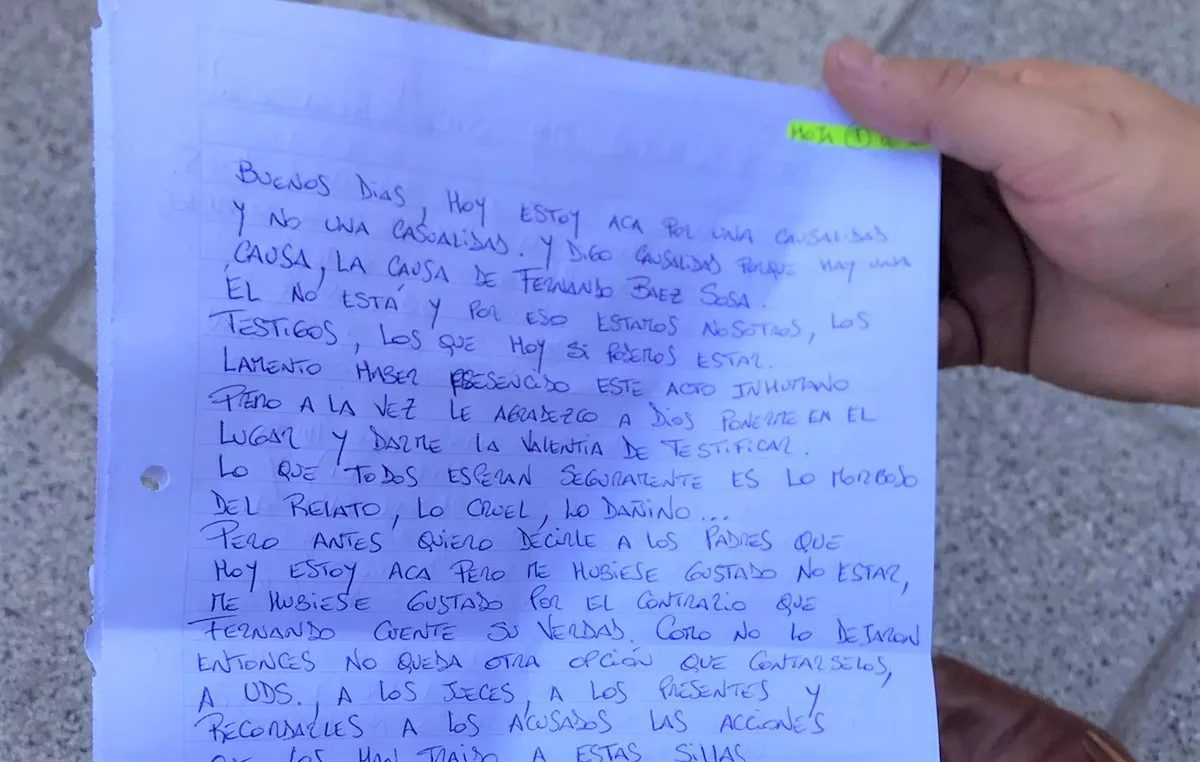 HOJA 1
BUENOS DIAS, HOY ESTOY ACA POR UNA CAUSALIDAD
Y NO UNA CASUALIDAD. Y DIGO CAUSALIDAD PORQUE HAY UNA
CAUSA, LA CAUSA DE FERNANDO BAEZ SOSA.
ÉL NO ESTÁ Y POR ESO ESTAMOS NOSOTROS, LOS
TESTIGOS, LOS QUE HOY SI PODEMOS ESTAR.
LAMENTO HABER PRESENCIDO ESTE ACTO INHUMANO
PERO A LA VEZ LE AGRADEZCO A DIOS PONERME EN EL
LUGAR Y DARME LA VALENTIA DE TESTIFICAR.
LO QUE TODOS ESPERAN SEGURAMENTE ES LO MORBOSO
DEL RELATO, LO CRUEL, LO DAÑINO...
PERO ANTES QUIERO DECIRLE A LOS PADRES QUE
HOY ESTOY ACA PERO ME HUBIESE GUSTADO NO ESTAR,
ME HUBIESE GUSTADO POR EL CONTRARIO QUE
FERNANDO CUENTE SU VERDAD. COMO NO LO DEJARON
ENTONCES NO QUEDA OTRA OPCIÓN QUE CONTARSELOS,
A UDS., A LOS JUECES, A LOS PRESENTES Y
RECORDARLES A LOS ACUSADOS LAS ACCIONES
QUE LOS HAN TRAIDO A ESTAS SILLAS